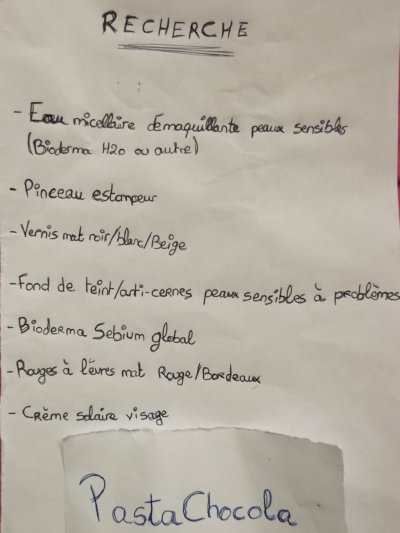 RECHERCHE
- Eau micellaire démaquillante peaux sensibles
(Bioderma H2O ou autre)
- Pinceau estompeur
- Vernis mat noir/blanc/Beige
- Fond de teint/anti-cernes peaux sensibles à problèmes
- Bioderma Sebium global
- Rouges à lèvres mat Rouge/Bordeaux
- Crème solaire visage
PastaChocola